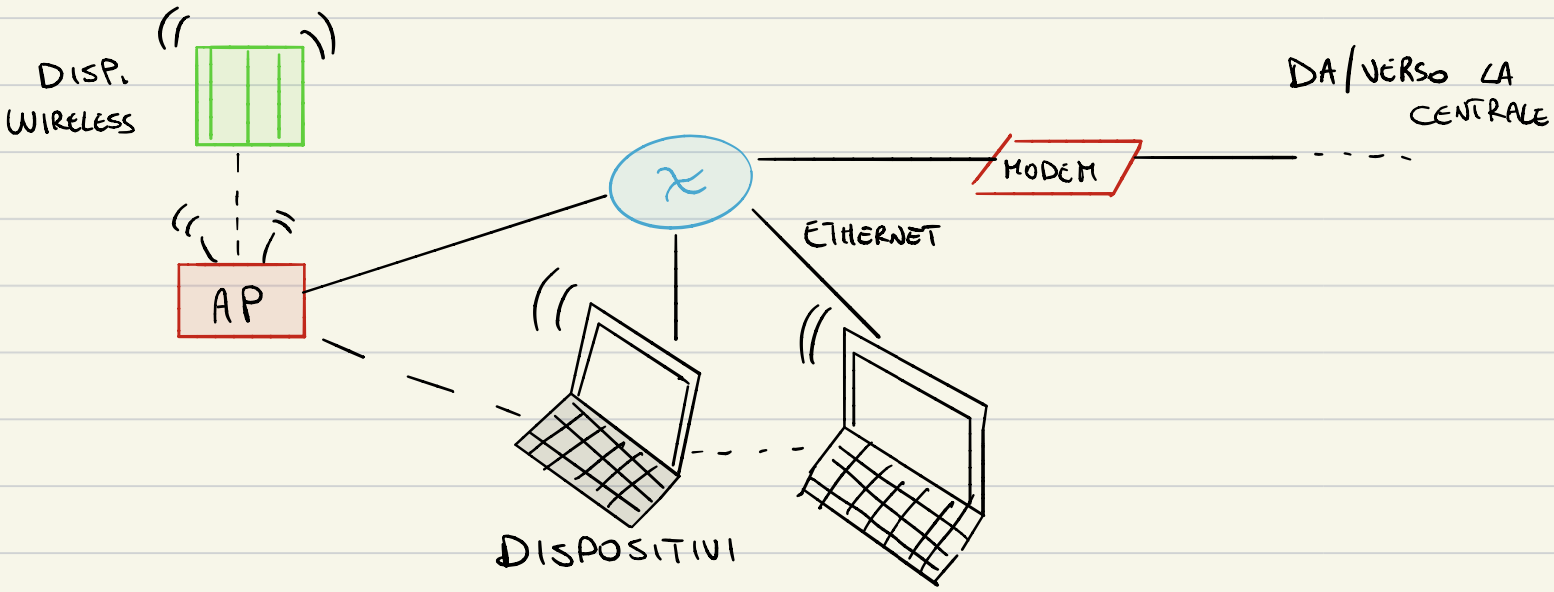 DISP.
WIRELESS
DA/VERSO LA
CENTRALE
MODEM
ETHERNET
AP
DISPOSITIVI